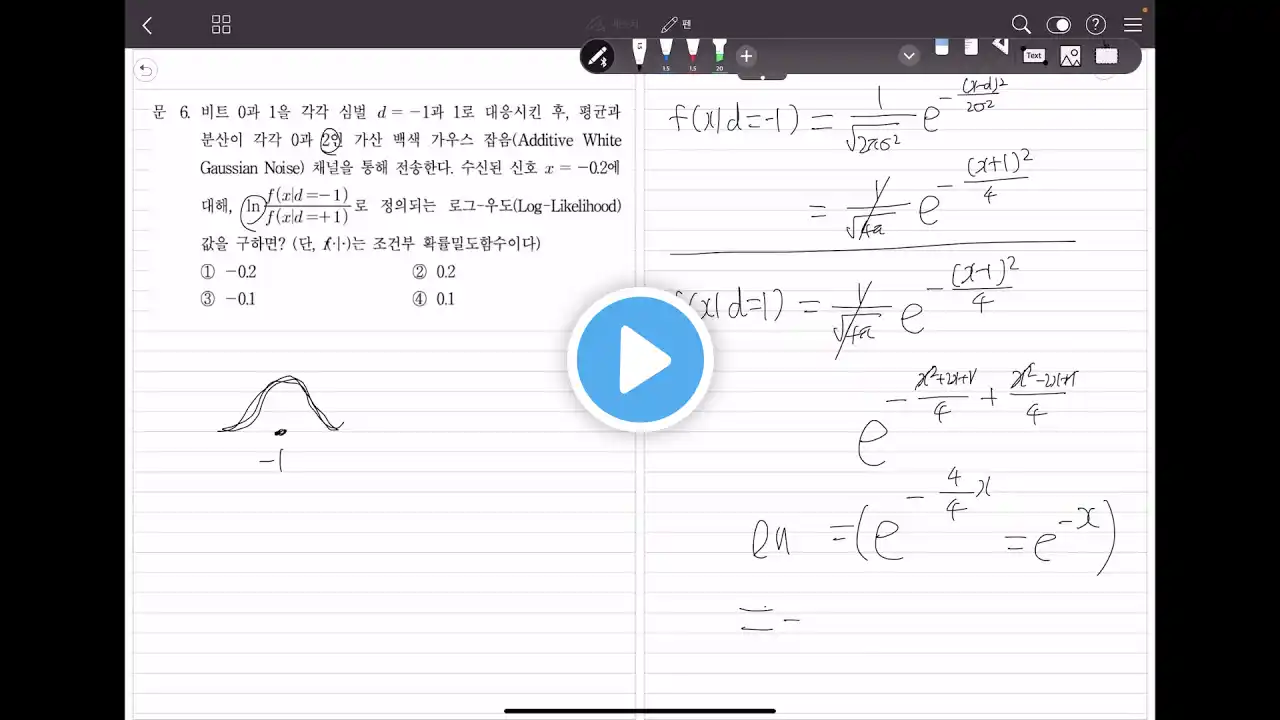 펜
Text
1.5 1.5 20
문 6. 비트 0과 1을 각각 심벌 d = −1과 1로 대응시킨 후, 평균과
분산이 각각 0과 2인 가산 백색 가우스 잡음(Additive White
Gaussian Noise) 채널을 통해 전송한다. 수신된 신호 x = −0.2에
대해, ln f(x|d=−1)/f(x|d=+1)로 정의되는 로그-우도(Log-Likelihood)
값을 구하면? (단, f(·|·)는 조건부 확률밀도함수이다)
① −0.2 ② 0.2
③ −0.1 ④ 0.1
−1
f(x|d=−1) = 1/√2πσ² e^−(x−d)²/2σ²
= 1/√4π e^−(x+1)²/4
(x|d=1) = 1/√4π e^−(x−1)²/4
e^−(x²+2x+1)/4 + (x²−2x+1)/4
ln =(e^−(4/4)x = e^−x)
= −